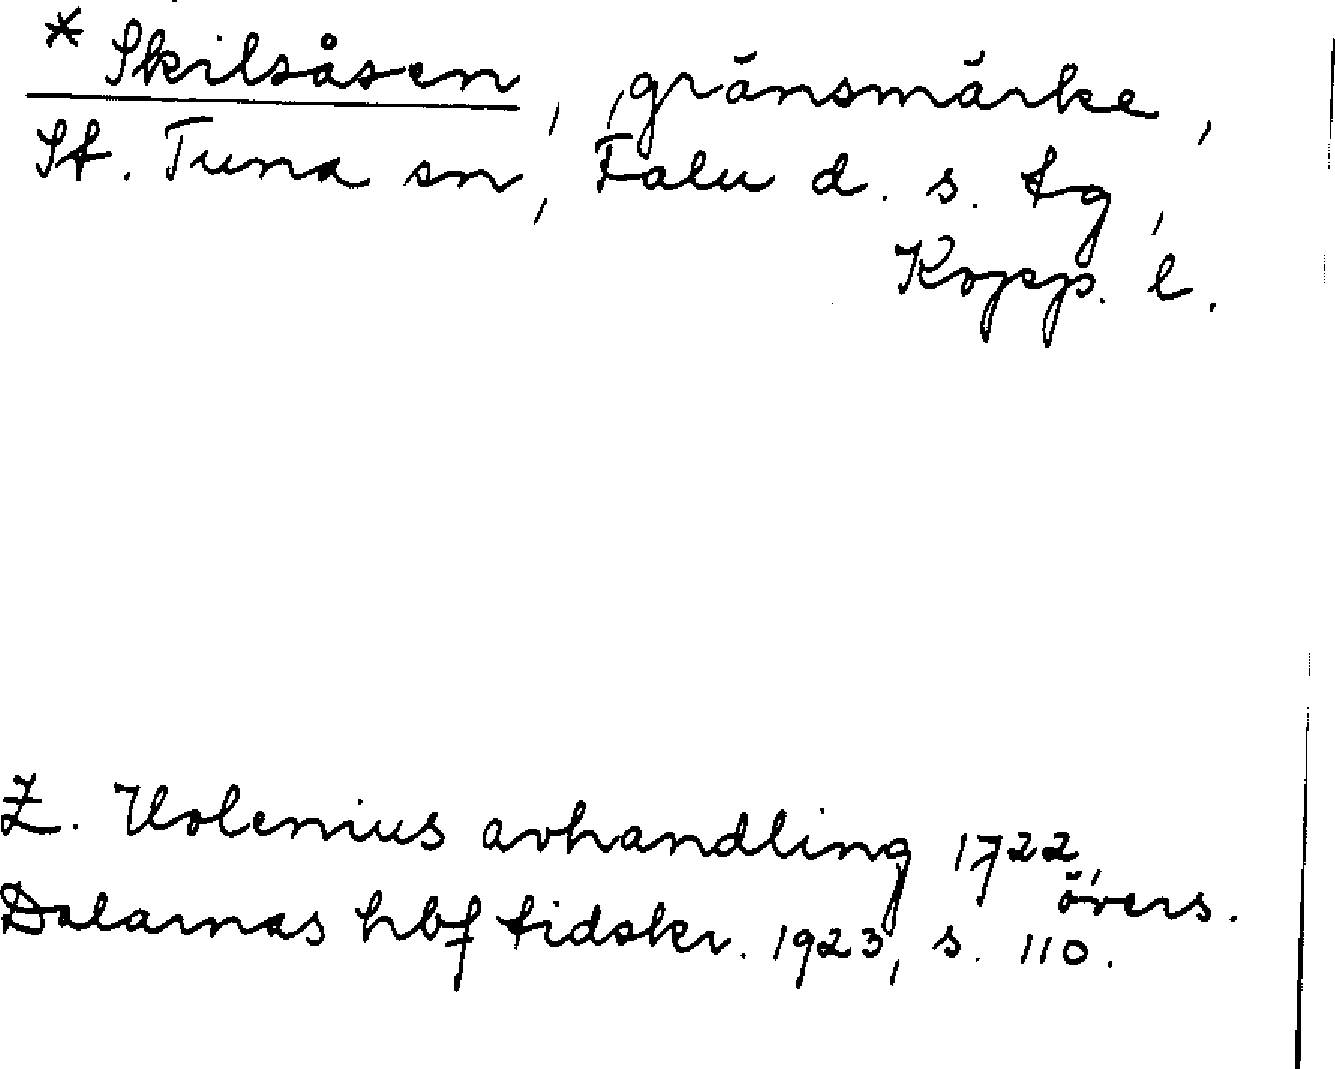 * Skilsåsen, gränsmärke,
St. Tuna sn, Falu d. s. tg,
Kopp. l.
Z. Holenius avhandling 1722, övers.
Dalarnas hbf tidskr. 1923, s. 110.